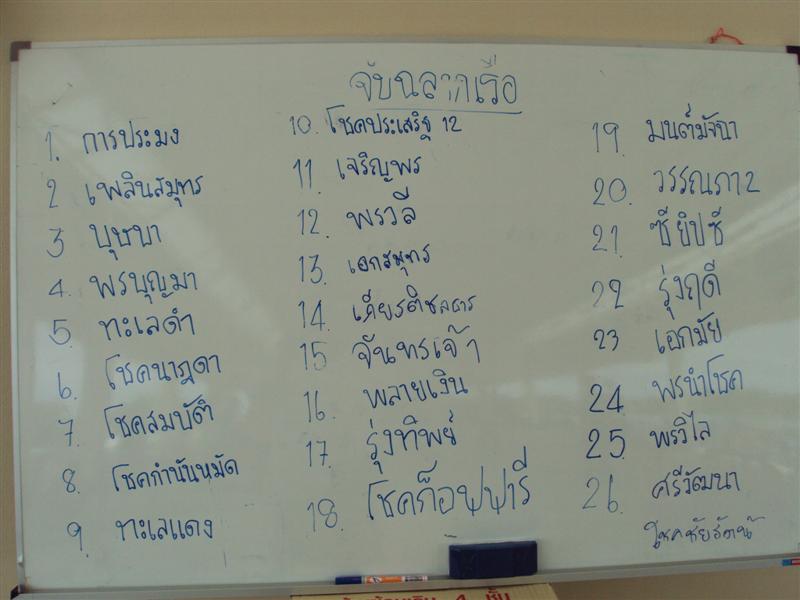 จับฉลากเรือ
1. การประมง
2 เพลินสมุทร
3 บุษบา
4. พรบุญมา
5. ทะเลดำ
6. โชคนาฎดา
7. โชคสมบัติ
8. โชคกำนันหมัด
9. ทะเลแดง
10. โชคประเสริฐ 12
11 เจริญพร
12. พรวลี
13. เอกสมุทร
14. เกียรติชลธาร
15 จันทรเจ้า
16. พลายเงิน
17. รุ่งทิพย์
18. โชคก็อฟฟารี
19. มนต์มัจฉา
20. วรรณภา 2
21. ซียิปซี
22 รุ่งฤดี
23 เอกมัย
24. พรนำโชค
25. พรวิไล
26. ศรีวัฒนา
โชคชัยรัตน์